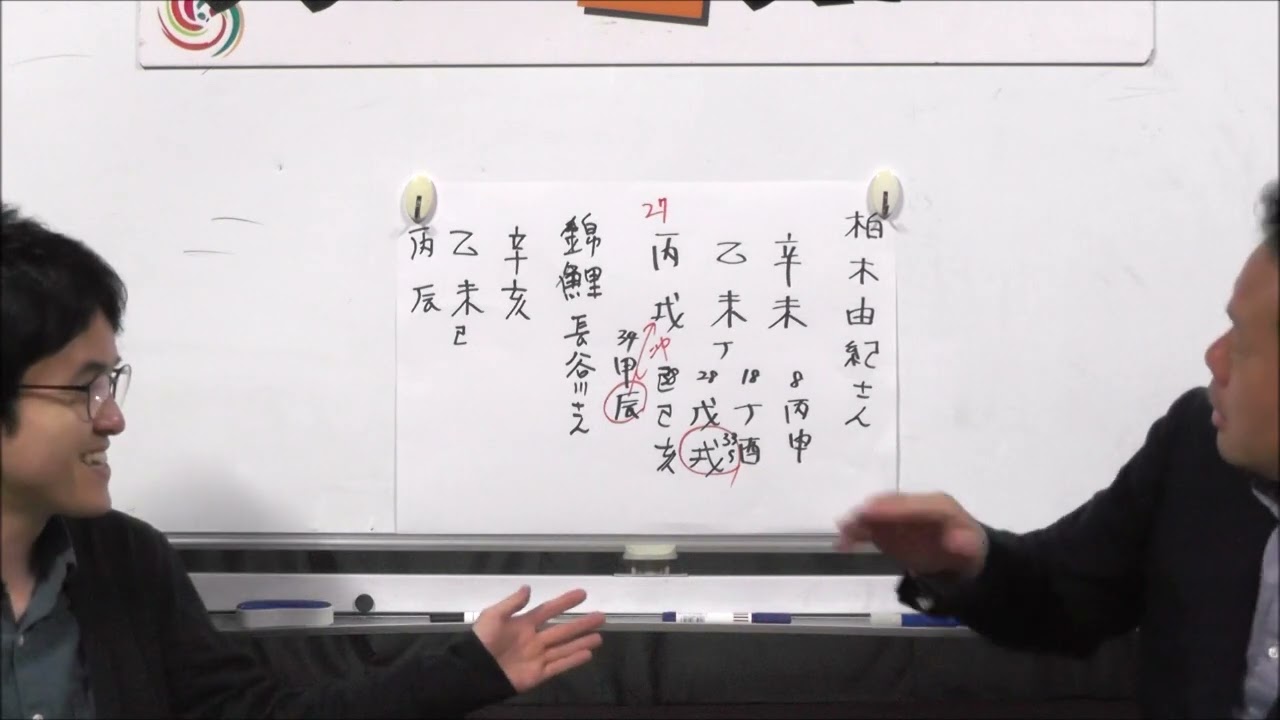 柏木由紀さん
辛未
乙未丁
27
丙戌
8
丙申
18
丁酉
28
戊戌
33
5
己亥
冲
34
甲辰
錦鯉
長谷川さん
辛亥
乙未己
丙辰